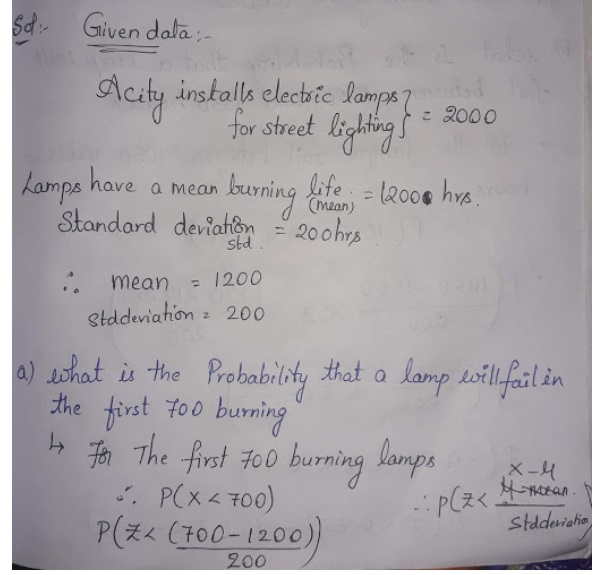 Sol:- Given data:-
A city installs electric lamps }
for street lighting } = 2000
Lamps have a mean burning life (mean) = 1200 hrs.
Standard deviation std. = 200hrs
∴ mean = 1200
stddeviation = 200
a) what is the Probability that a lamp will fail in
the first 700 burning
↳ For The first 700 burning lamps
∴ P(X < 700)
∴ P(Z < (X-M) / Stddeviation)
P(Z < (700-1200) / 200)